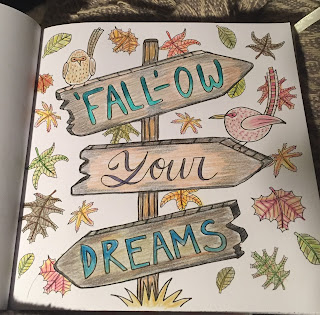 'FALL'-OW
Your
DREAMS